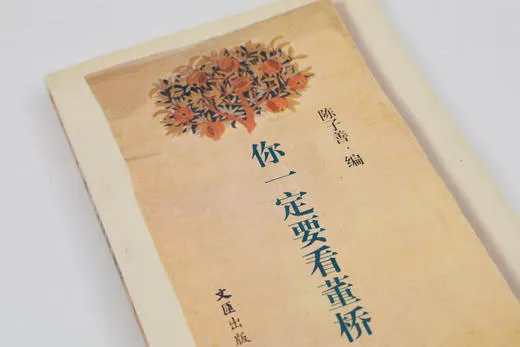 陈子善·编
你一定要看董桥
文匯出版